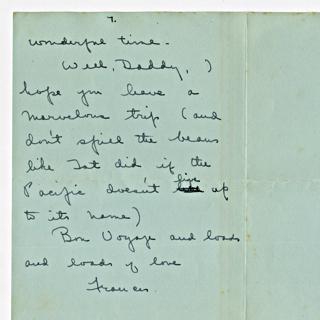 7.
wonderful time.
Well, Daddy, I
hope you have a
marvelous trip (and
don't spill the beans
like Tat did if the
Pacific doesn't live up
to its name)
Bon Voyage and loads
and loads of love
Frances.